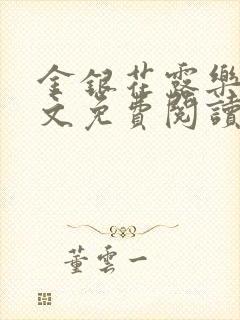 金銀花露樂
文免費閱讀
董雲一